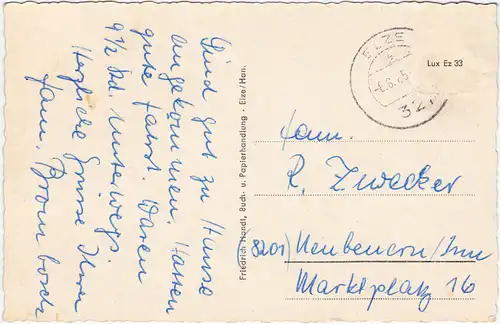 Sind gut zu Hause
angekommen. Hatten
gute Fahrt. Waren
9 1/2 Std. unterwegs.
Herzliche Grüsse Ihnen
Fam. Brombosch
Friedrich Handl, Buch- u. Papierhandlung - Elze/Han.
ELZE
-6.6.65
32
Lux Ez 33
Fam.
R. Zwecker
8201) Neubeuern/Inn
Marktplatz 16